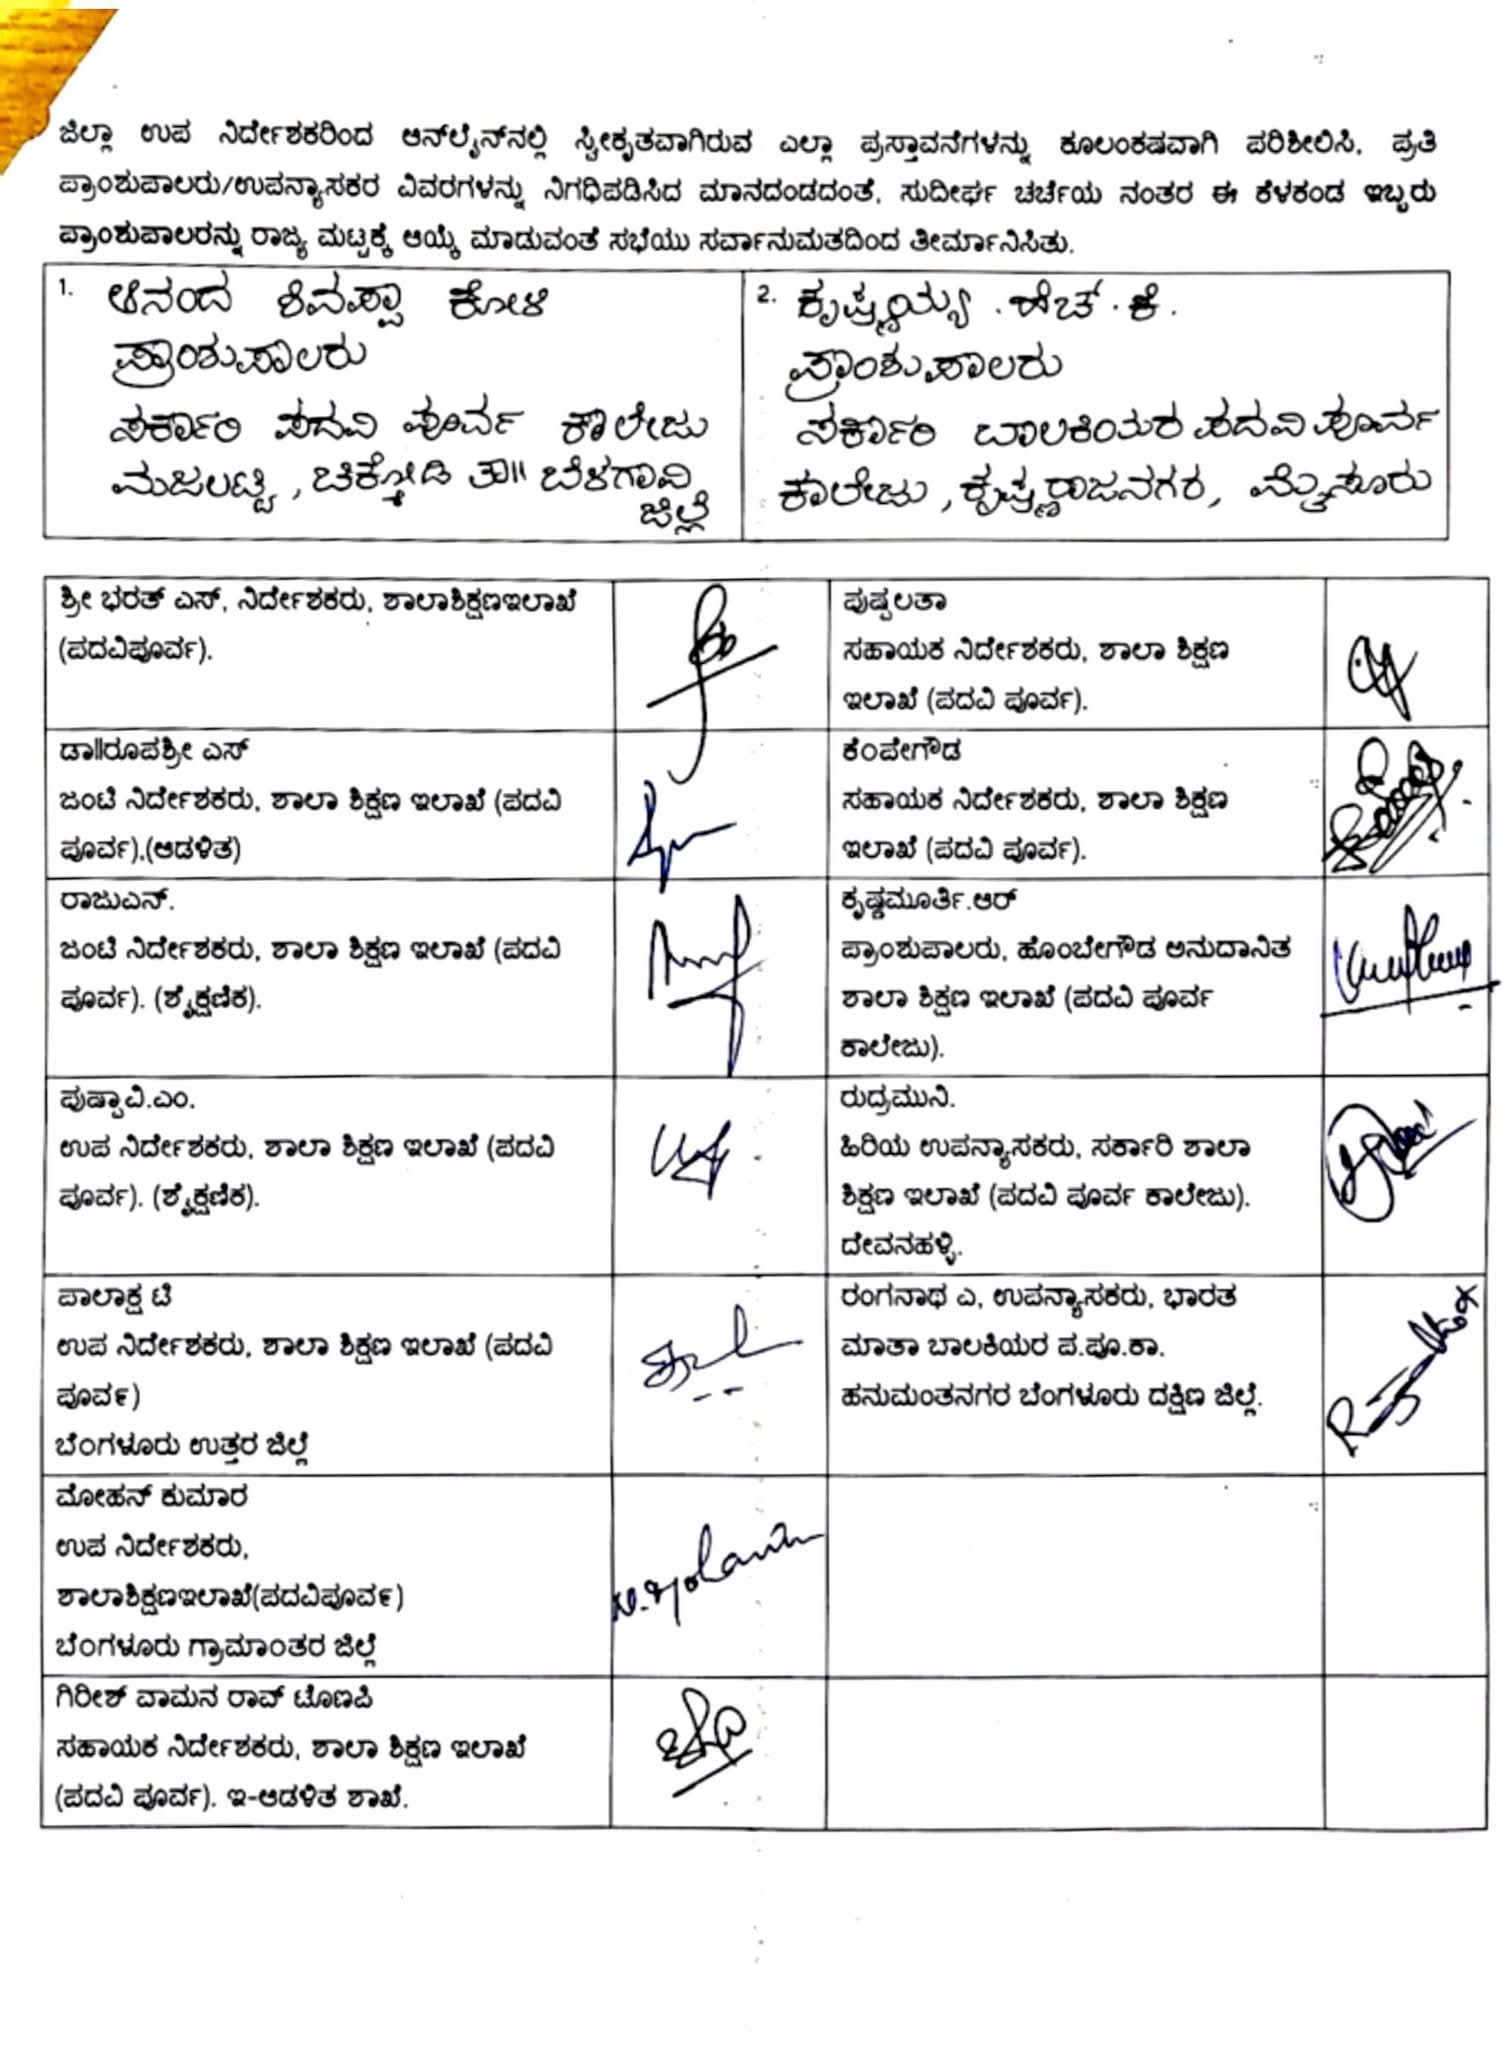 ಜಿಲ್ಲಾ ಉಪ ನಿರ್ದೇಶಕರಿಂದ ಆನ್‌ಲೈನ್‌ನಲ್ಲಿ ಸ್ವೀಕೃತವಾಗಿರುವ ಎಲ್ಲಾ ಪ್ರಸ್ತಾವನೆಗಳನ್ನು ಕೂಲಂಕಷವಾಗಿ ಪರಿಶೀಲಿಸಿ, ಪ್ರತಿ
ಪ್ರಾಂಶುಪಾಲರು/ಉಪನ್ಯಾಸಕರ ವಿವರಗಳನ್ನು ನಿಗಧಿಪಡಿಸಿದ ಮಾನದಂಡದಂತೆ, ಸುದೀರ್ಘ ಚರ್ಚೆಯ ನಂತರ ಈ ಕೆಳಕಂಡ ಇಬ್ಬರು
ಪ್ರಾಂಶುಪಾಲರನ್ನು ರಾಜ್ಯ ಮಟ್ಟಕ್ಕೆ ಆಯ್ಕೆ ಮಾಡುವಂತೆ ಸಭೆಯು ಸರ್ವಾನುಮತದಿಂದ ತೀರ್ಮಾನಿಸಿತು.
1. ಆನಂದ ಶಿವಪ್ಪಾ ಕೋಳಿ
ಪ್ರಾಂಶುಪಾಲರು
ಸರ್ಕಾರಿ ಪದವಿ ಪೂರ್ವ ಕಾಲೇಜು
ಮಜಲಟ್ಟಿ, ಚಿಕ್ಕೋಡಿ ತಾ॥ ಬೆಳಗಾವಿ
ಜಿಲ್ಲೆ
2. ಕೃಷ್ಣಯ್ಯ . ಹೆಚ್ . ಕೆ.
ಪ್ರಾಂಶುಪಾಲರು
ಸರ್ಕಾರಿ ಬಾಲಕಿಯರ ಪದವಿ ಪೂರ್ವ
ಕಾಲೇಜು, ಕೃಷ್ಣರಾಜನಗರ, ಮೈಸೂರು
ಶ್ರೀ ಭರತ್ ಎಸ್, ನಿರ್ದೇಶಕರು, ಶಾಲಾಶಿಕ್ಷಣಇಲಾಖೆ
(ಪದವಿಪೂರ್ವ).
ಪುಷ್ಪಲತಾ
ಸಹಾಯಕ ನಿರ್ದೇಶಕರು, ಶಾಲಾ ಶಿಕ್ಷಣ
ಇಲಾಖೆ (ಪದವಿ ಪೂರ್ವ).
ಡಾ||ರೂಪಶ್ರೀ ಎಸ್
ಜಂಟಿ ನಿರ್ದೇಶಕರು, ಶಾಲಾ ಶಿಕ್ಷಣ ಇಲಾಖೆ (ಪದವಿ
ಪೂರ್ವ).(ಆಡಳಿತ)
ಕೆಂಪೇಗೌಡ
ಸಹಾಯಕ ನಿರ್ದೇಶಕರು, ಶಾಲಾ ಶಿಕ್ಷಣ
ಇಲಾಖೆ (ಪದವಿ ಪೂರ್ವ).
ರಾಜುಎನ್.
ಜಂಟಿ ನಿರ್ದೇಶಕರು, ಶಾಲಾ ಶಿಕ್ಷಣ ಇಲಾಖೆ (ಪದವಿ
ಪೂರ್ವ). (ಶೈಕ್ಷಣಿಕ).
ಕೃಷ್ಣಮೂರ್ತಿ.ಆರ್
ಪ್ರಾಂಶುಪಾಲರು, ಹೊಂಬೇಗೌಡ ಅನುದಾನಿತ
ಶಾಲಾ ಶಿಕ್ಷಣ ಇಲಾಖೆ (ಪದವಿ ಪೂರ್ವ
ಕಾಲೇಜು).
ಪುಷ್ಪಾವಿ.ಎಂ.
ಉಪ ನಿರ್ದೇಶಕರು, ಶಾಲಾ ಶಿಕ್ಷಣ ಇಲಾಖೆ (ಪದವಿ
ಪೂರ್ವ). (ಶೈಕ್ಷಣಿಕ).
ರುದ್ರಮುನಿ.
ಹಿರಿಯ ಉಪನ್ಯಾಸಕರು, ಸರ್ಕಾರಿ ಶಾಲಾ
ಶಿಕ್ಷಣ ಇಲಾಖೆ (ಪದವಿ ಪೂರ್ವ ಕಾಲೇಜು).
ದೇವನಹಳ್ಳಿ.
ಪಾಲಾಕ್ಷ ಟಿ
ಉಪ ನಿರ್ದೇಶಕರು, ಶಾಲಾ ಶಿಕ್ಷಣ ಇಲಾಖೆ (ಪದವಿ
ಪೂರ್ವ)
ಬೆಂಗಳೂರು ಉತ್ತರ ಜಿಲ್ಲೆ
ರಂಗನಾಥ ಎ, ಉಪನ್ಯಾಸಕರು, ಭಾರತ
ಮಾತಾ ಬಾಲಕಿಯರ ಪ.ಪೂ.ಕಾ.
ಹನುಮಂತನಗರ ಬೆಂಗಳೂರು ದಕ್ಷಿಣ ಜಿಲ್ಲೆ.
ಮೋಹನ್ ಕುಮಾರ
ಉಪ ನಿರ್ದೇಶಕರು,
ಶಾಲಾಶಿಕ್ಷಣಇಲಾಖೆ(ಪದವಿಪೂರ್ವ)
ಬೆಂಗಳೂರು ಗ್ರಾಮಾಂತರ ಜಿಲ್ಲೆ
ಗಿರೀಶ್ ವಾಮನ ರಾವ್ ಟೊಣಪಿ
ಸಹಾಯಕ ನಿರ್ದೇಶಕರು, ಶಾಲಾ ಶಿಕ್ಷಣ ಇಲಾಖೆ
(ಪದವಿ ಪೂರ್ವ). ಇ-ಆಡಳಿತ ಶಾಖೆ.